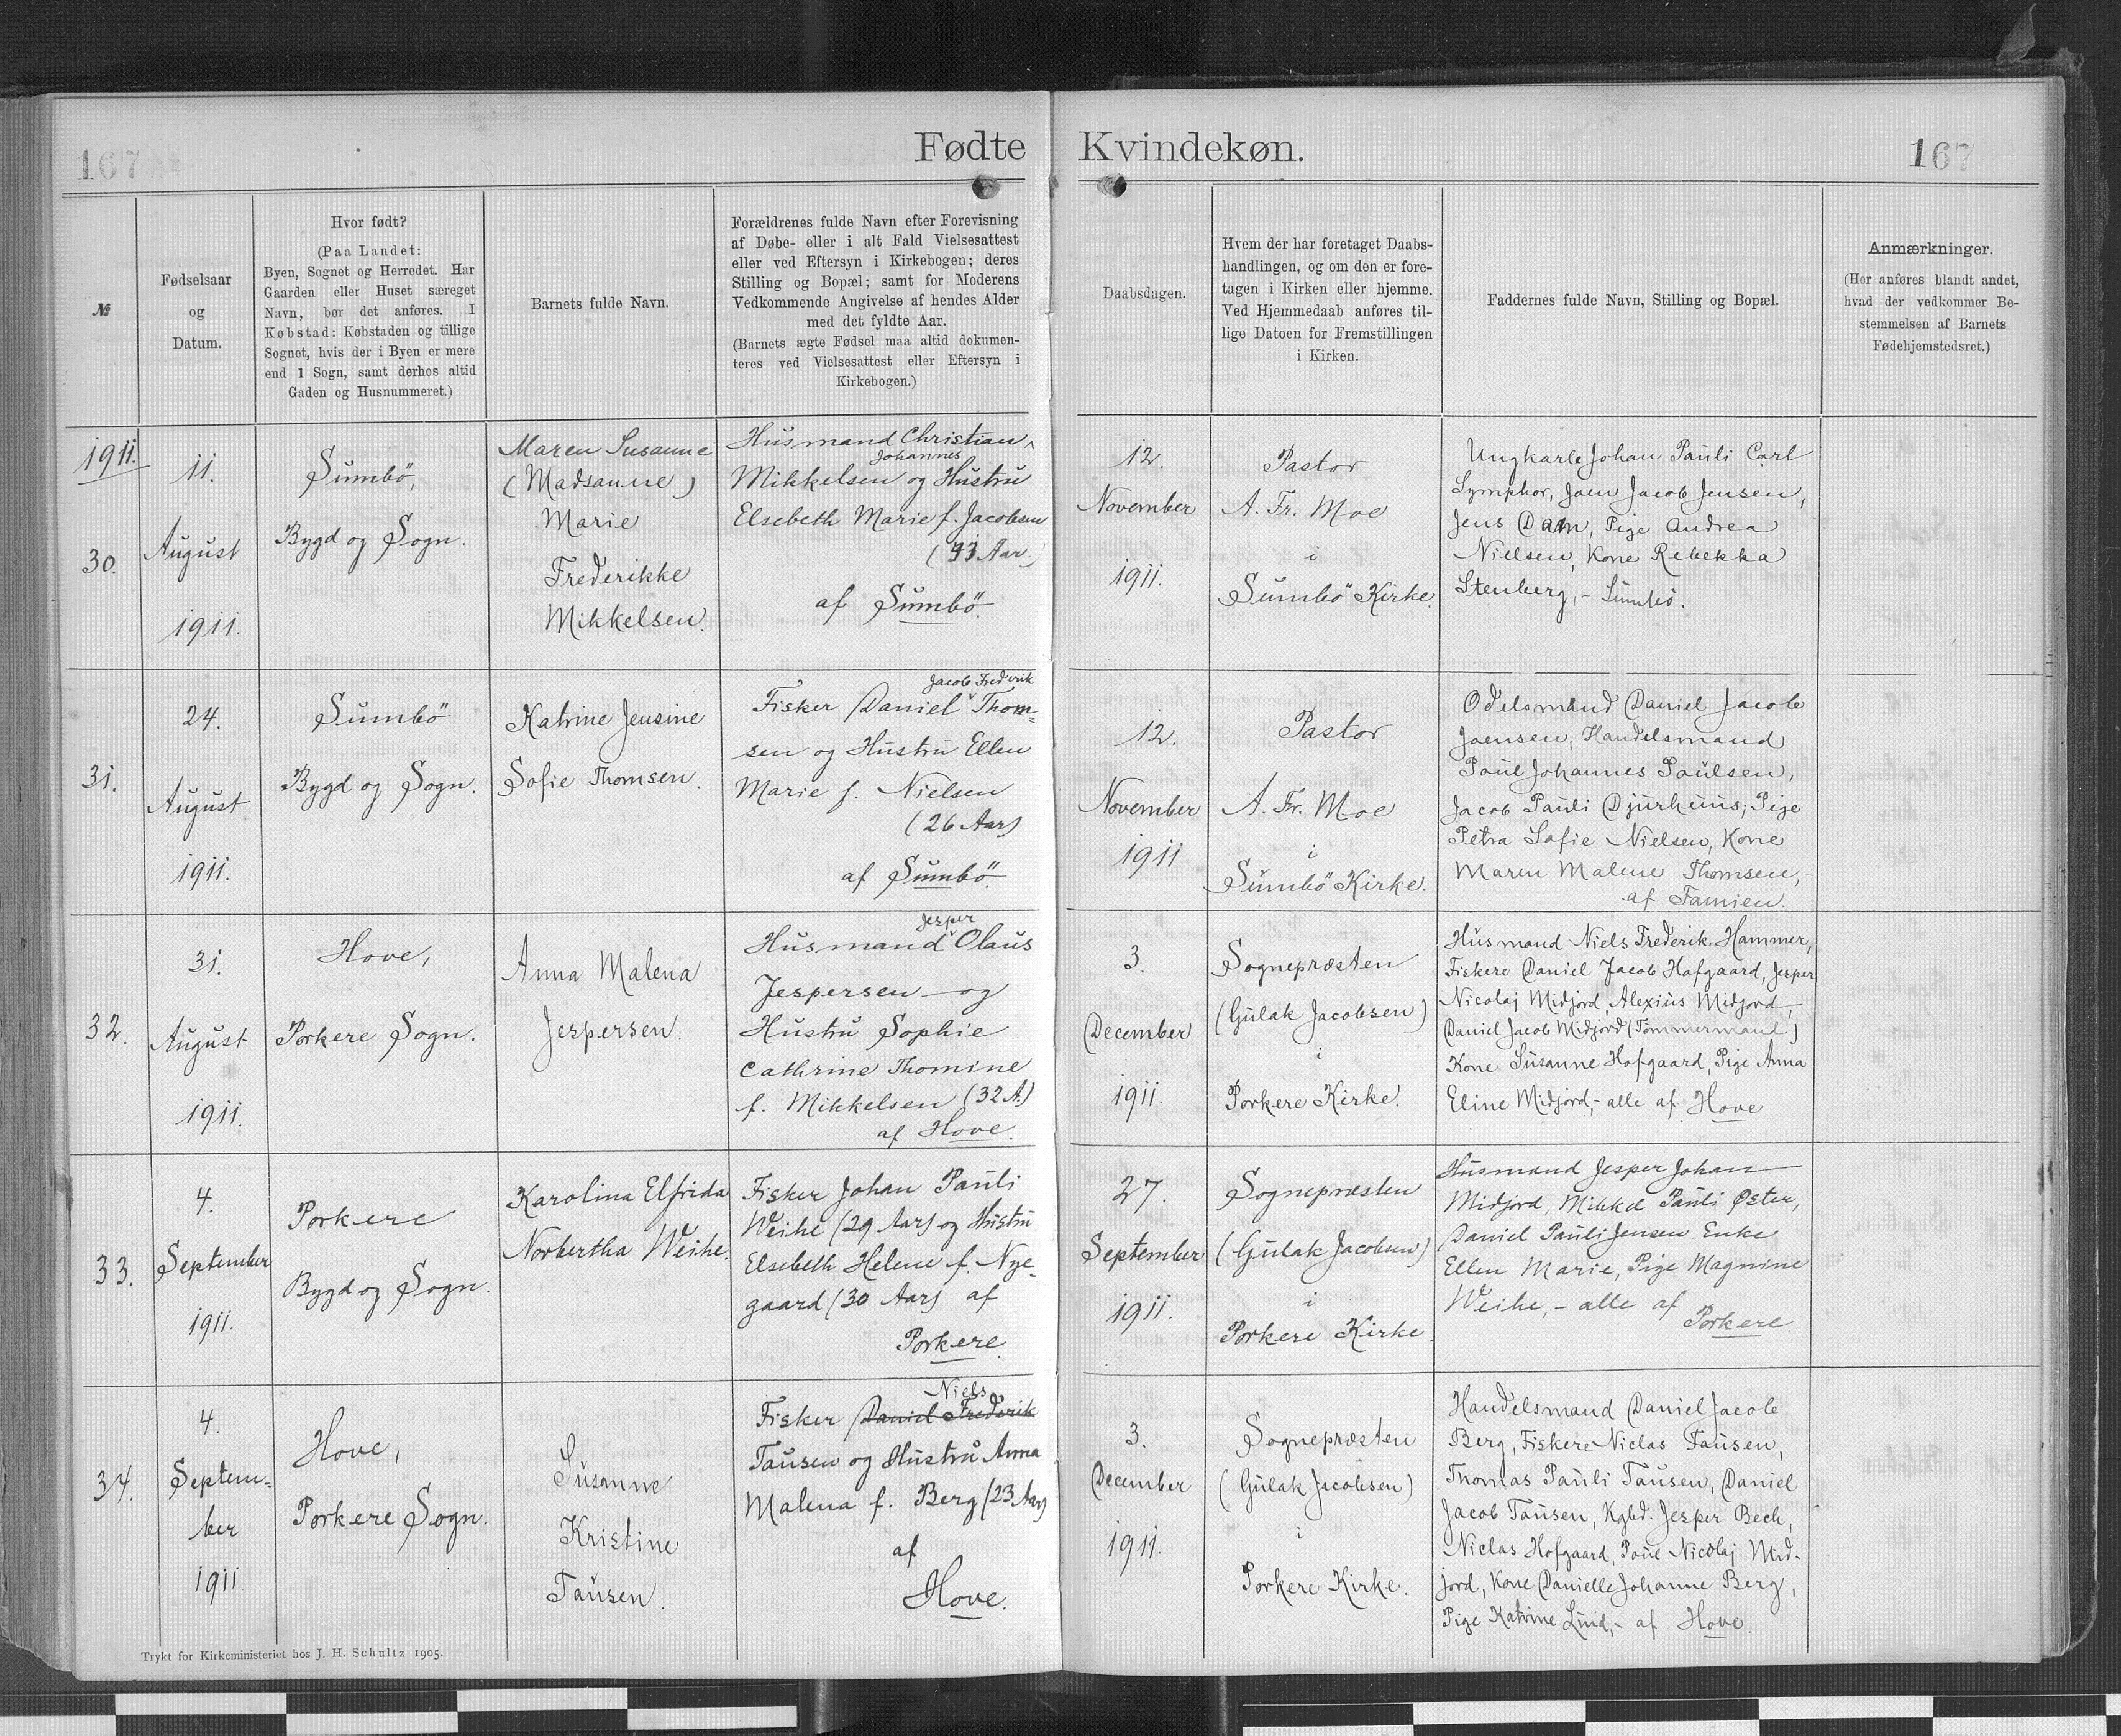 167
Fødte Kvindekøn.
167
№
Fødselsaar
og
Datum.
Hvor født?
(Paa Landet:
Byen, Sognet og Herredet. Har
Gaarden eller Huset særeget
Navn, bør det anføres. I
Købstad: Købstaden og tillige
Sognet, hvis der i Byen er mere
end 1 Sogn, samt derhos altid
Gaden og Husnummeret.)
Barnets fulde Navn.
Forældrenes fulde Navn efter Forevisning
af Døbe- eller i alt Fald Vielsesattest
eller ved Eftersyn i Kirkebogen; deres
Stilling og Bopæl; samt for Moderens
Vedkommende Angivelse af hendes Alder
med det fyldte Aar.
(Barnets ægte Fødsel maa altid dokumen-
teres ved Vielsesattest eller Eftersyn i
Kirkebogen.)
Daabsdagen.
Hvem der har foretaget Daabs-
handlingen, og om den er fore-
tagen i Kirken eller hjemme.
Ved Hjemmedaab anføres til-
lige Datoen for Fremstillingen
i Kirken.
Faddernes fulde Navn, Stilling og Bopæl.
Anmærkninger.
(Her anføres blandt andet,
hvad der vedkommer Be-
stemmelsen af Barnets
Fødehjemstedsret.)
1911.
30.
11.
August
1911.
Sumbö,
Bygd og Sogn.
Maren Susanne
(Madsanne)
Marie
Frederikke
Mikkelsen.
Husmand Christian
Johannes
Mikkelsen og Hustru
Elsebeth Marie f. Jacobsen
Aar.)
af Sumbö.
12.
November
1911.
Pastor
A. Fr. Moe
i
Sumbö Kirke.
Ungkarle Johan Pauli Carl
Symphor, Joen Jacob Jensen,
Jens Dam, Pige Andrea
Nielsen, Kone Rebekka
Stenberg, - Sumbö.
31.
24.
August
1911.
Sumbö
Bygd og Sogn.
Katrine Jensine
Sofie Thomsen.
Jacob Frederik
Fisker Daniel Thom-
sen og Hustru Ellen
Marie f. Nielsen
(26 Aar)
af Sumbö.
12.
November
1911
Pastor
A. Fr. Moe
i
Sumbö Kirke.
Odelsmand Daniel Jacob
Joensen, Handelsmand
Poul Johannes Poulsen,
Jacob Pauli Djurhuus; Pige
Petra Sofie Nielsen, Kone
Maren Malene Thomsen, -
af Famien.
32.
31.
August
1911.
Hove,
Porkere Sogn.
Anna Malena
Jespersen.
Jesper
Husmand Olaus
Jespersen og
Hustru Sophie
Cathrine Thomine
f. Mikkelsen (32 A.)
af Hove.
3.
December
1911.
Sognepræsten
(Gulak Jacobsen)
i
Porkere Kirke.
Husmand Niels Frederik Hammer,
Fiskere Daniel Jacob Hofgaard, Jesper
Nicolaj Midjord, Alexius Midjord,
Daniel Jacob Midjord (Tømmermand)
Kone Susanne Hofgaard, Pige Anna
Eline Midjord, - alle af Hove
33.
4.
September
1911.
Porkere
Bygd og Sogn.
Karolina Elfrida
Norbertha Weihe.
Fisker Johan Pauli
Weihe (29 Aar) og Hustru
Elsebeth Helene f. Nye-
gaard (30 Aar) af
Porkere.
27.
September
1911.
Sognepræsten
(Gulak Jacobsen)
i
Porkere Kirke.
Husmand Jesper Johan
Midjord, Mikkel Pauli Øster,
Daniel Pauli Jensen Enke
Ellen Marie, Pige Magnine
Weihe, - alle af Porkere
34.
4.
Septem-
ber
1911
Hove,
Porkere Sogn.
Susanne
Kristine
Tausen.
Niels
Fisker Daniel Frederik
Tausen og Hustru Anna
Malena f. Berg (23 Aar)
af
Hove.
3.
December
1911.
Sognepræsten
(Gulak Jacobsen)
i
Porkere Kirke.
Handelsmand Daniel Jacob
Berg, Fiskere Niclas Tausen,
Thomas Pauli Tausen, Daniel
Jacob Tausen, Kgbd. Jesper Bech,
Niclas Hofgaard, Poul Nicolaj Mid-
jord, Kone Danielle Johanne Berg,
Pige Katrine Lind, - af Hove.
Trykt for Kirkeministeriet hos J. H. Schultz 1905.